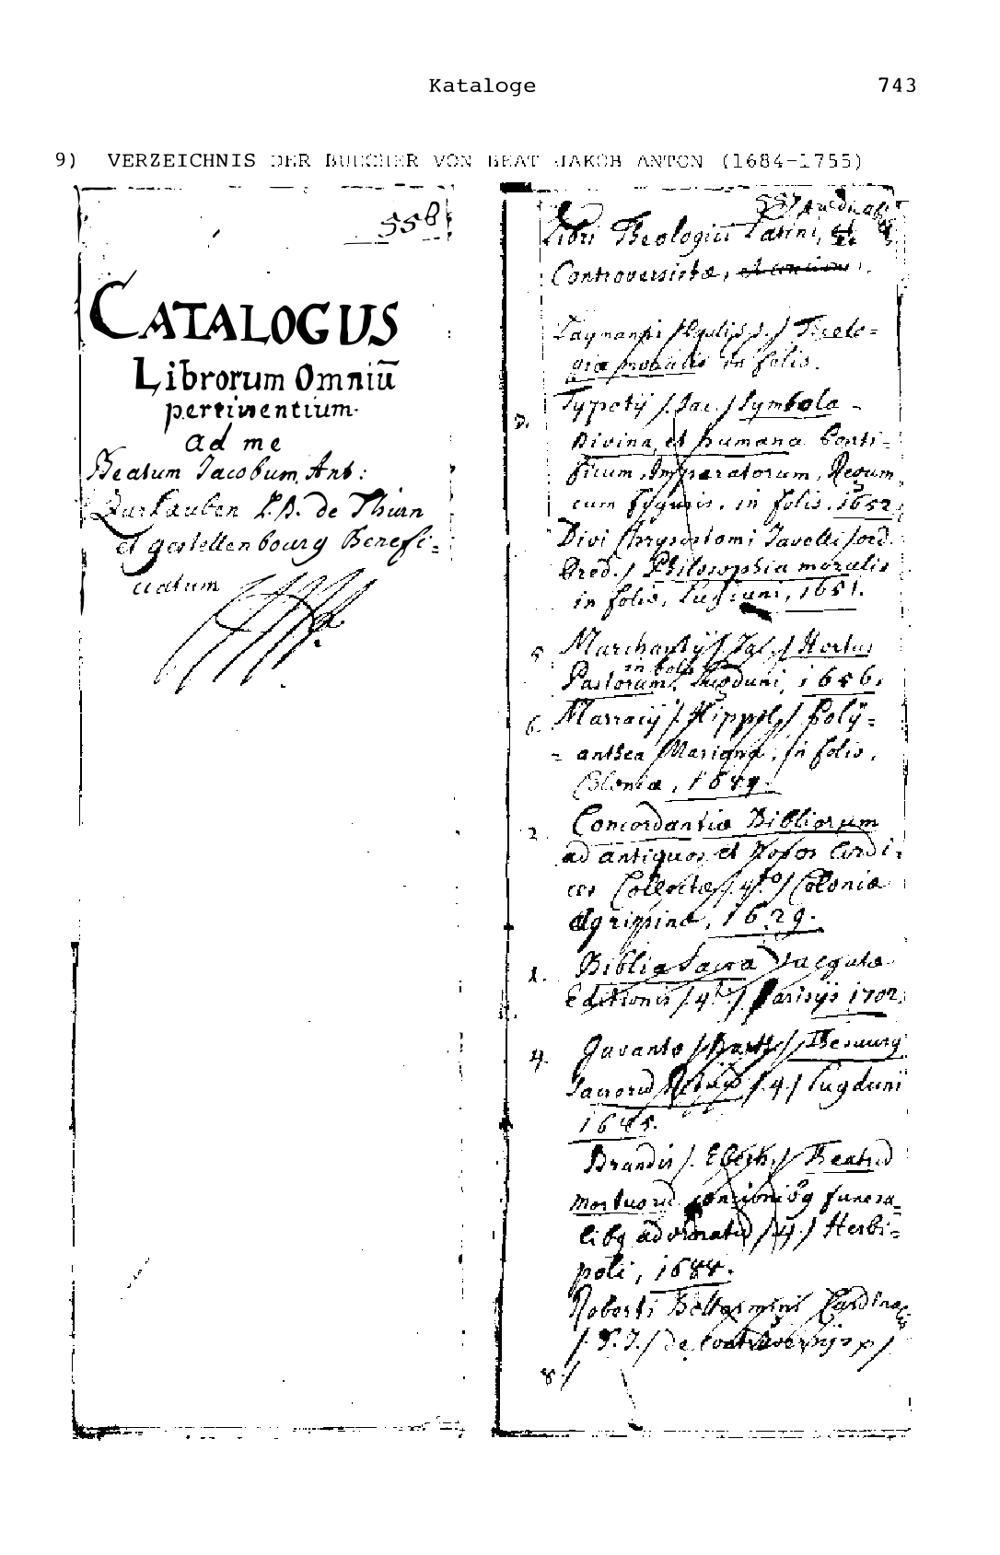 Kataloge 743
9) VERZEICHNIS DER BUECHER VON BEAT JAKOB ANTON (1684-1755)
558
CATALOGUS
Librorum Omniū
pertinentium
ad me
Beatum Jacobum Ant:
Zurlauben de Thurn
et gestellenbourg Benefi=
ciatum
557
Libri Theologici Latini, et
Controversistæ, et
Laymanni Theolo=
gia moralis in folio.
Typotij /. Jac. / Symbola
Divina et humana Ponti=
ficum, Imperatorum, Regum
cum figuris. in folio. 1652.
Divi Chrysostomi Javelli /ord.
Pred. / Philosophia moralis
in folio, Lugduni, 1651.
5. Marchantij /. Jac. / Hortus
in folio
Pastorum, Lugduni, 1656.
6. Marracij /. Hippol. / Polÿ=
= anthea Mariana, in folio.
Coloniæ, 1689.
2. Concordantiæ Bibliorum
ad antiquos et Novos Codi=
ces Collectæ /. 4to / Coloniæ
Agrippinæ, 1629.
1. Biblia Sacra Vulgatæ
Editionis /. 4to /. Parisijs 1702.
4. Gavanto /. Barth. /
Sacrorū /. 4. / Lugduni
1645.
Brandis /. /
mortuorū concionibq funera=
libq adornatū /. 4. / Herbi=
poli, 1688.
Roberti Bellarmini Cardina
/. S. J. / De Controversijs
8. /